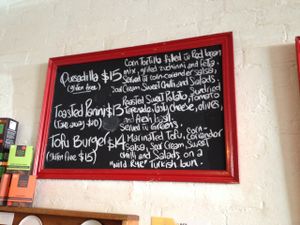 Quesadilla $15 Corn Tortilla filled w Red bean
(gluten free) mix, grilled zucchini and feta.
Served w corn-coriander salsa,
Sour Cream, Sweet Chilli and Salads.
Toasted Panini $13 Roasted Sweet Potato, Sundried
(Take away $10) tomato, tasty cheese, olives,
and fresh basil.
Served w Greens
Tofu Burger $14 Marinated Tofu, corn-coriander
(gluten free $15) salsa, Sour Cream, Sweet
chilli and Salads on a
"Wild Rye" Turkish bun.